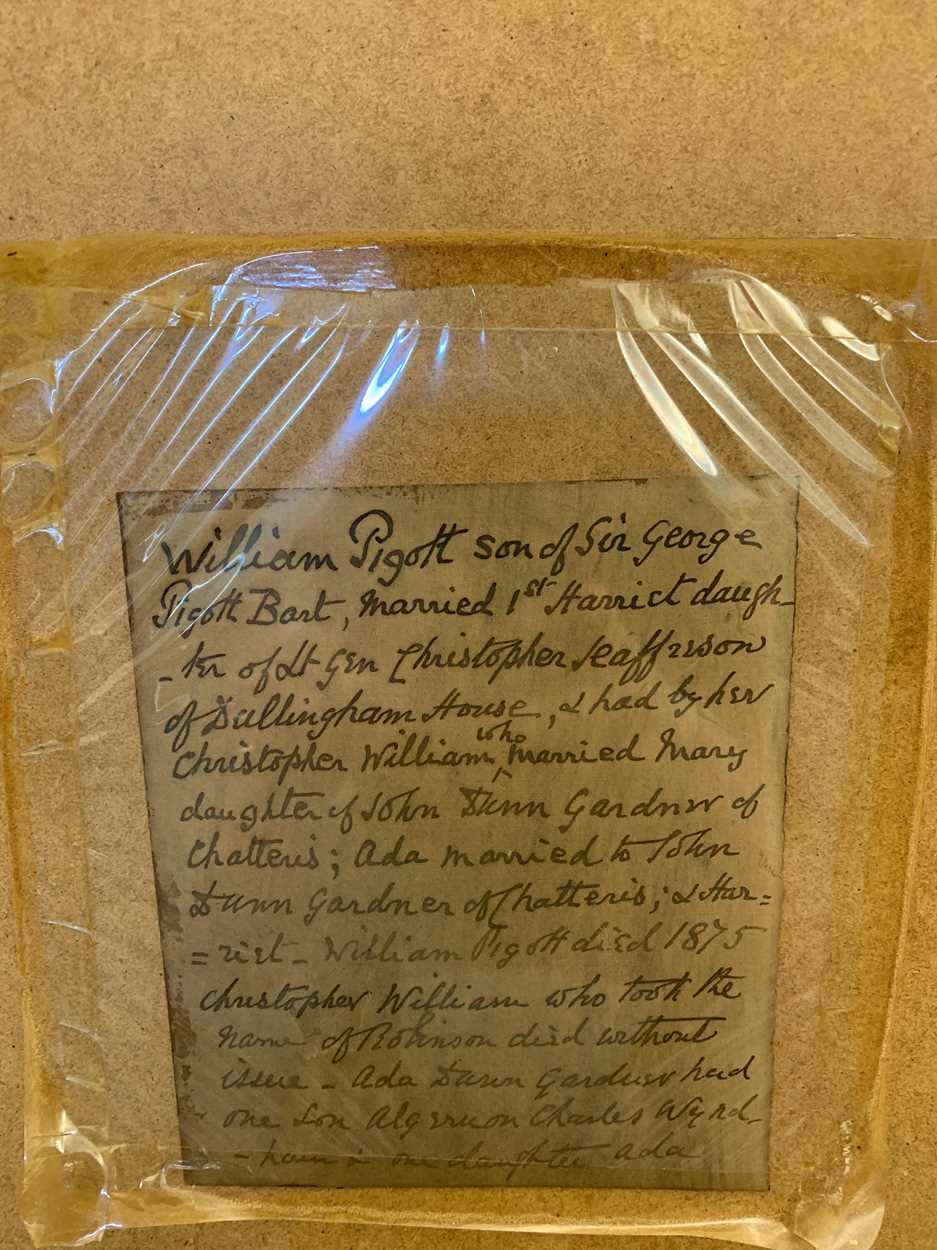 William Pigott son of Sir George
Pigott Bart, married 1st Harriet daugh-
-ter of Lt Gen Christopher Jeaffreson
of Dullingham House, & had by her
Christopher William who married Mary
daughter of John Dunn Gardner of
Chatteris; Ada married to John
Dunn Gardner of Chatteris; & Har=
=riet - William Pigott died 1875
Christopher William who took the
name of Robinson died without
issue - Ada Dunn Gardner had
one son Algernon Charles Wynd-
-ham & one daughter Ada